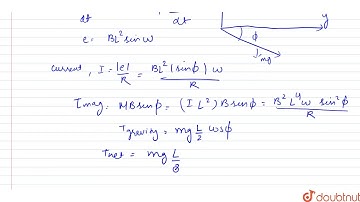 dt dt y
e = BL² sin ω
ϕ
mg
current, I = |e|/R = BL² (sinϕ) ω / R
τmag = MB sinϕ = (I L²) B sinϕ = B² L⁴ ω sin²ϕ / R
τgraving = mg L/2 cosϕ
τnet = mg L/
doubtnut